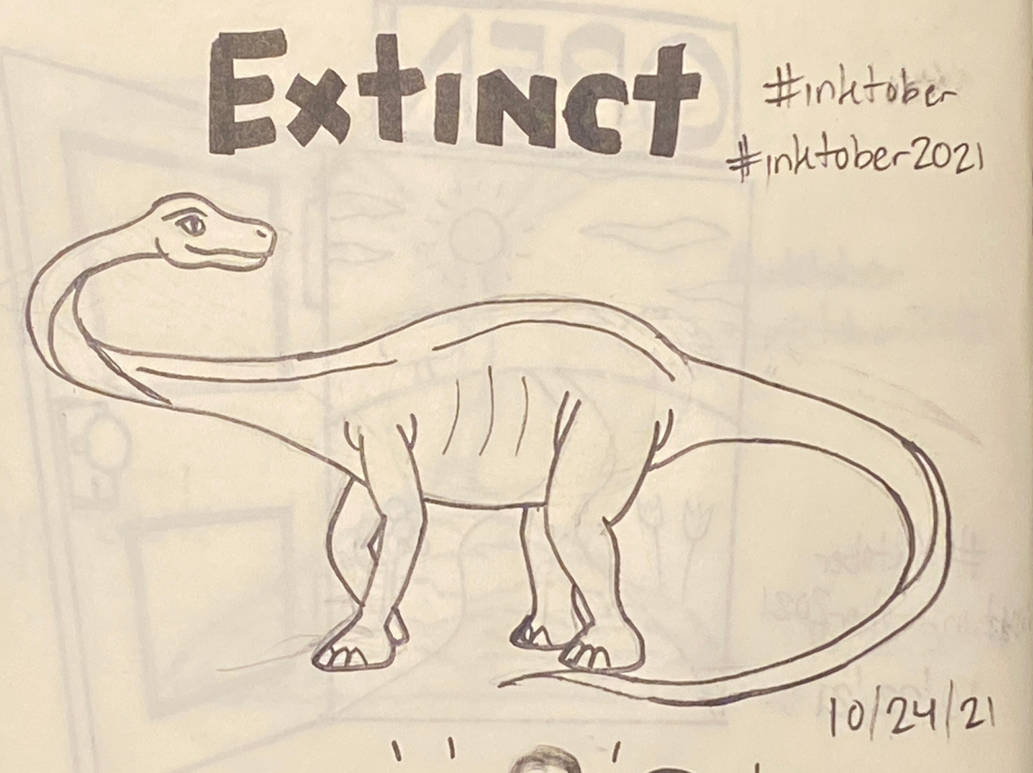 Extinct
#inktober
#inktober2021
10/24/21